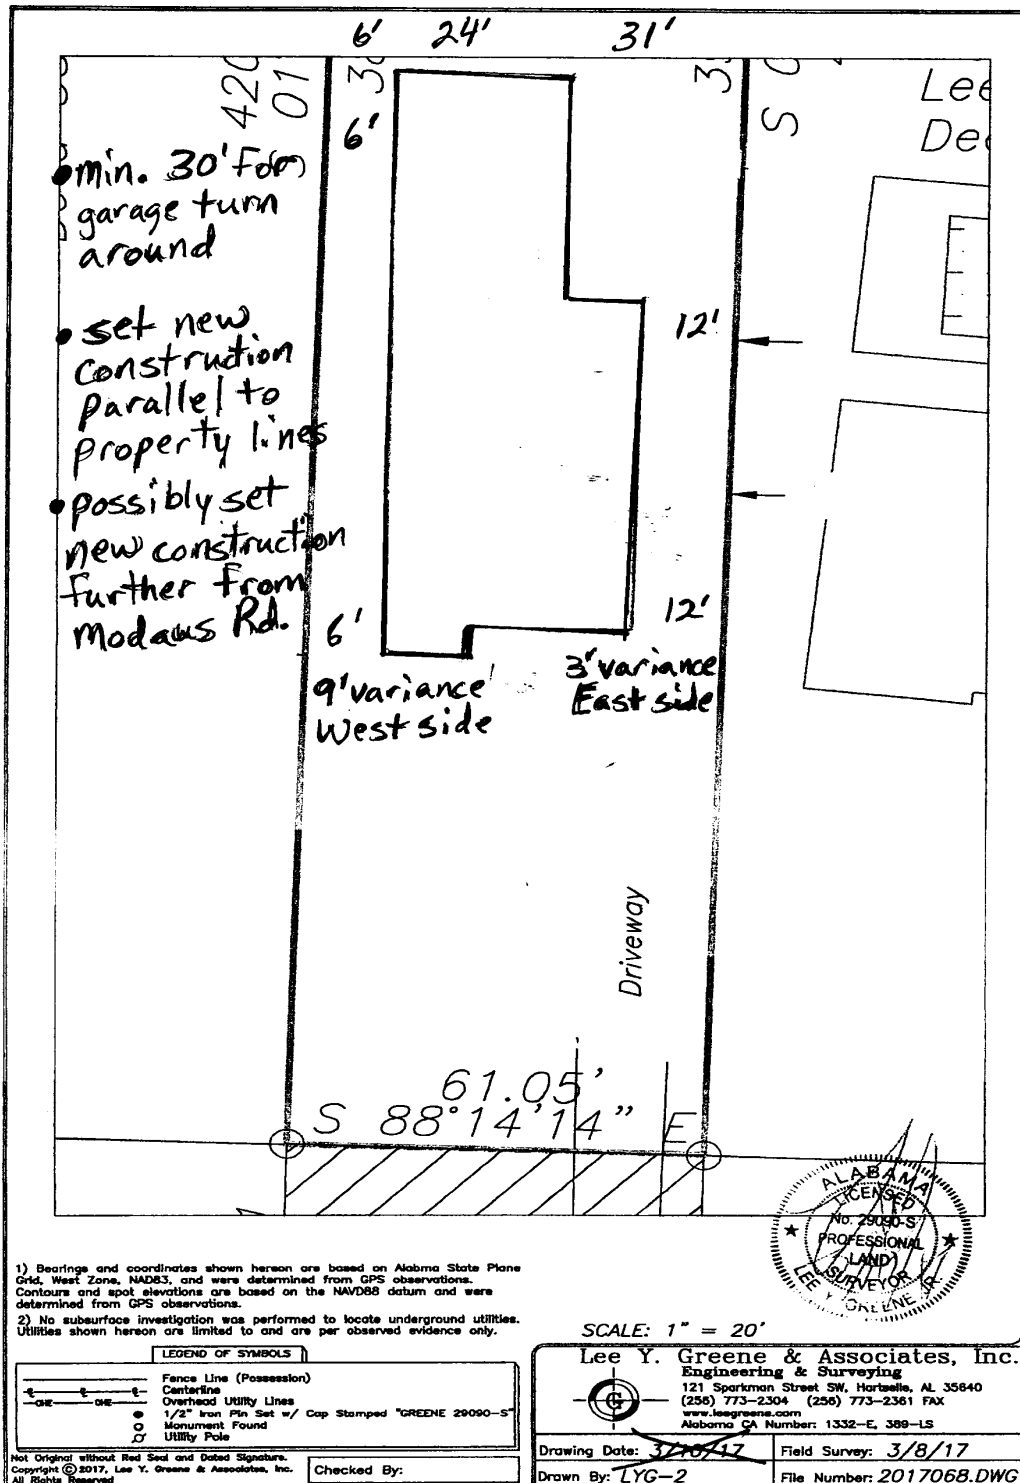 6' 24' 31'
420
01
S
Lee
6'
• min. 30' For
garage turn
around
• set new
construction
parallel to
property lines
• possibly set
new construction
further from
Modaus Rd.
12'
12'
6'
9' variance
West side
3' variance
East side
Driveway
61.05'
S 88°14'14" E
ALABAMA
LICENSED
No. 29090-S
PROFESSIONAL
LAND
SURVEYOR
LEE Y. GREENE JR.
1) Bearings and coordinates shown hereon are based on Alabma State Plane
Grid, West Zone, NAD83, and were determined from GPS observations.
Contours and spot elevations are based on the NAVD88 datum and were
determined from GPS observations.
2) No subsurface investigation was performed to locate underground utilities.
Utilities shown hereon are limited to and are per observed evidence only.
SCALE: 1" = 20'
LEGEND OF SYMBOLS
Fence Line (Possession)
Centerline
OHE OHE Overhead Utility Lines
1/2" Iron Pin Set w/ Cap Stamped "GREENE 29090-S"
Monument Found
Utility Pole
Not Original without Red Seal and Dated Signature.
Copyright © 2017, Lee Y. Greene & Associates, Inc.
All Rights Reserved
Checked By:
Lee Y. Greene & Associates, Inc.
Engineering & Surveying
G
121 Sparkman Street SW, Hartselle, AL 35640
(256) 773-2304 (256) 773-2361 FAX
www.leegreene.com
Alabama CA Number: 1332-E, 389-LS
Drawing Date: 3/10/17
Field Survey: 3/8/17
Drawn By: LYG-2
File Number: 2017068.DWG